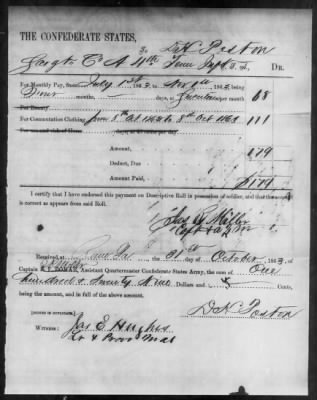 THE CONFEDERATE STATES,
To D H Poston
Sergt Co A 4th Tenn Inft DR.
For Monthly Pay, from July 1st 1863, to Nov 1st 1863, being
Four months, days, at Seventeen per month 68
For Bounty
For Commutation Clothing from 8th Oct 1862 to 8th Oct 1863 111
Amount, 179
Deduct, Due
Amount Paid, $179
I certify that I have endorsed this payment on Descriptive Roll in possession of soldier, and that the account
is correct as appears from said Roll.
Jas Miller
Capt & AQM
Received at Ga the 31st day of October 1863, of
Captain Assistant Quartermaster Confederate States Army, the sum of One
hundred & Seventy Nine Dollars and Cents,
being the amount, and in full of the above amount.
D H Poston
[SIGNED IN DUPLICATE.]
Witness: Jas E Hughes
Lt & Provo Mar